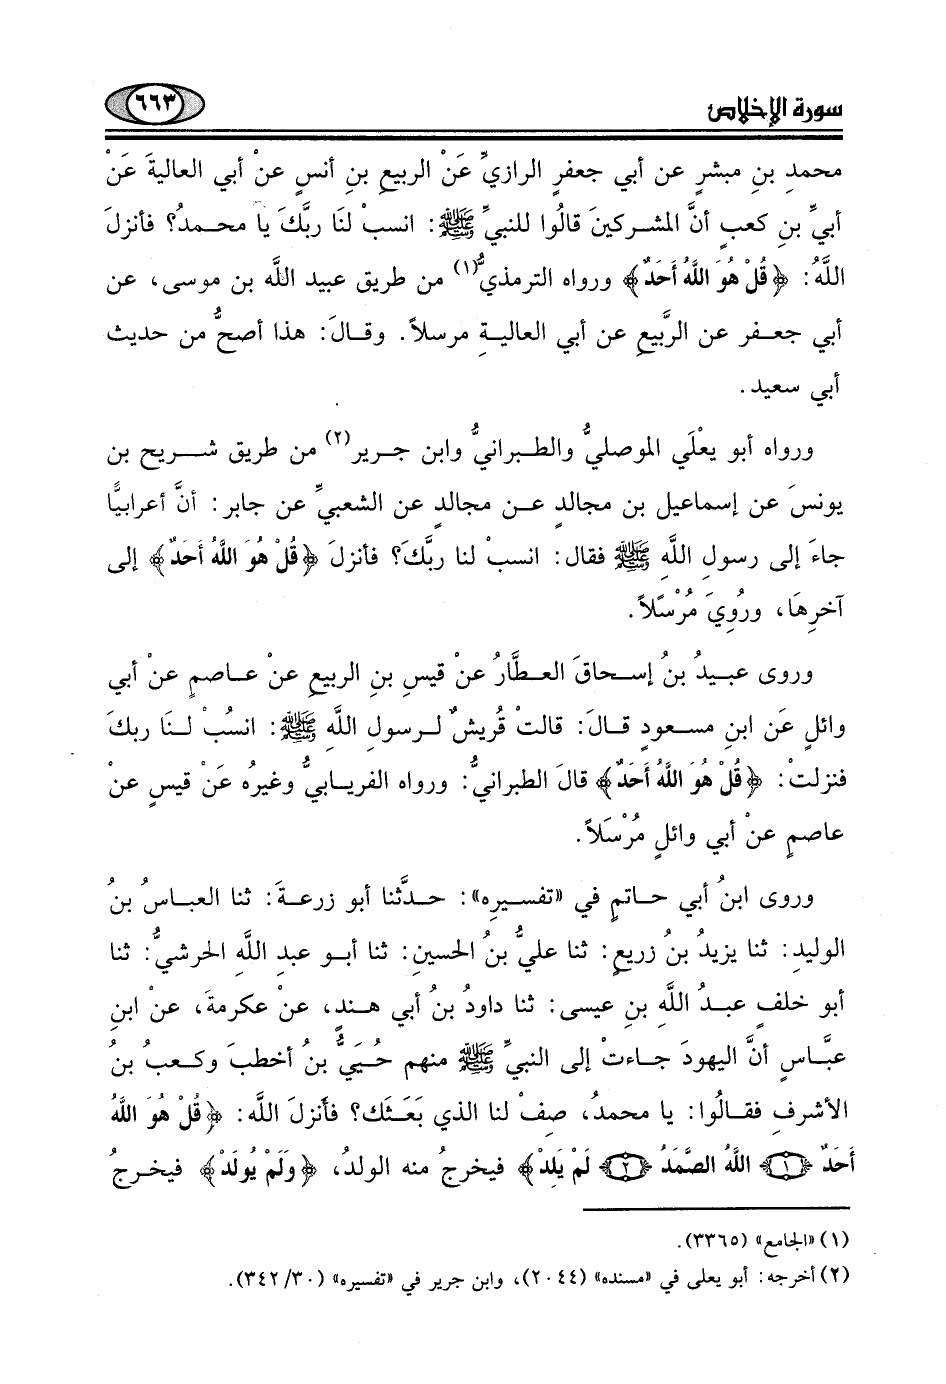 سورة الإخلاص
٦٦٣
محمدِ بنِ مبشرٍ عن أبي جعفرٍ الرازيِّ عَنْ الربيعِ بنِ أنسٍ عنْ أبي العاليةَ عَنْ
أبيِّ بنِ كعبٍ أنَّ المشركينَ قالُوا للنبيِّ ﷺ: انسبْ لنَا ربَّكَ يا محمدُ؟ فأنزلَ
اللَّهُ: ﴿قُلْ هُوَ اللَّهُ أَحَدٌ﴾ ورواه الترمذيُّ(١) من طريق عبيد الله بن موسى، عن
أبي جعفر عن الرَّبيعِ عن أبي العاليةِ مرسلاً. وقالَ: هذا أصحُّ من حديث
أبي سعيد.
ورواه أبو يعْلَى الموصليُّ والطبرانيُّ وابن جرير(٢) من طريق شريح بن
يونسَ عن إسماعيل بن مجالدٍ عن مجالدٍ عن الشعبيِّ عن جابر: أنَّ أعرابيًّا
جاءَ إلى رسول اللَّهِ ﷺ فقال: انسبْ لنا ربَّكَ؟ فأنزلَ ﴿قُلْ هُوَ اللَّهُ أَحَدٌ﴾ إلى
آخرِهَا، ورُوِيَ مُرْسَلاً.
وروى عبيدُ بنُ إسحاقَ العطَّارُ عنْ قيسِ بنِ الربيعِ عنْ عاصمٍ عنْ أبي
وائلٍ عَن ابنِ مسعودٍ قالَ: قالتْ قُريشٌ لرسولِ اللَّهِ ﷺ: انسُبْ لنَا ربكَ
فنزلتْ: ﴿قُلْ هُوَ اللَّهُ أَحَدٌ﴾ قالَ الطبرانيُّ: ورواه الفريابيُّ وغيرُه عَنْ قيسٍ عنْ
عاصمٍ عنْ أبي وائلٍ مُرْسَلاً.
وروى ابنُ أبي حاتمٍ في «تفسيرِه»: حدَّثنا أبو زرعةَ: ثنا العباسُ بنُ
الوليدِ: ثنا يزيدُ بنُ زريعٍ: ثنا عليُّ بنُ الحسينِ: ثنا أبو عبدِ اللَّهِ الحرشيُّ: ثنا
أبو خلفٍ عبدُ اللَّهِ بنِ عيسى: ثنا داودُ بنُ أبي هندٍ، عنْ عكرمةَ، عنْ ابنِ
عبَّاسٍ أنَّ اليهودَ جاءتْ إلى النبيِّ ﷺ منهم حُيَيُّ بنُ أخطبَ وكعبُ بنُ
الأشرفِ فقالُوا: يا محمدُ، صفْ لنا الذي بَعَثَك؟ فأنزلَ الله: ﴿قُلْ هُوَ اللَّهُ
أَحَدٌ ﴿١﴾ اللَّهُ الصَّمَدُ ﴿٢﴾ لَمْ يَلِدْ﴾ فيخرجُ منه الولدُ، ﴿وَلَمْ يُولَدْ﴾ فيخرجُ
(١) «الجامع» (٣٣٦٥).
(٢) أخرجه: أبو يعلى في «مسنده» (٢٠٤٤)، وابن جرير في «تفسيره» (٣٤٢/٣٠).